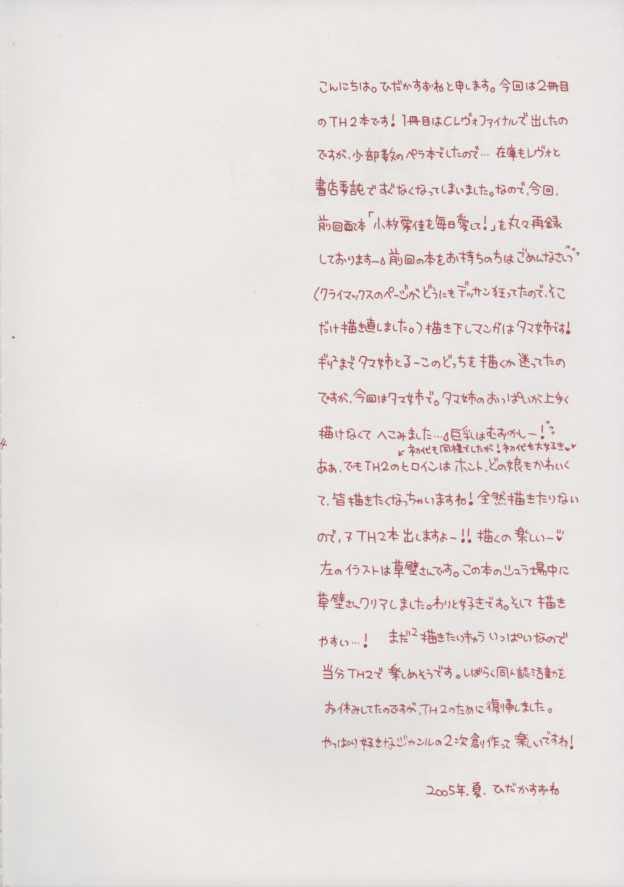 こんにちは。ひだかすずねと申します。今回は2冊目
のTH2本です！1冊目はCレヴォファイナルで出したの
ですが、少部数のペラ本でしたので… 在庫もレヴォと
書店委託ですぐなくなってしまいました。なので、今回、
前回本「小牧愛佳を毎日愛して！」を丸々再録
しております〜 前回の本をお持ちの方はごめんなさいっ
(クライマックスのページがどうにもデッサン狂ってたので、そこ
だけ描き直しました。)描き下しマンガはタマ姉です！
ギリ²までタマ姉とるーこのどっちを描くか迷ってたの
ですが、今回はタマ姉で。タマ姉のおっぱいが上手く
描けなくてヘこみました… 巨乳はむずかしー！
↙初代も同様でしたが！初代も大好き♥♥
ああ、でもTH2のヒロインはホント、どの娘もかわいく
て、皆描きたくなっちゃいますね！全然描きたりない
ので、又TH2本出しますよ〜!! 描くの楽しい〜♥
左のイラストは草壁さんです。この本のシュラ場中に
草壁さんクリアしました。わりと好きです。そして描き
やすい…！ まだ²描きたいキャラいっぱいなので
当分TH2で楽しめそうです。しばらく同人誌活動を
お休みしてたのですが、TH2のために復帰しました。
やっぱり好きなジャンルの2次創作って楽しいですね！
2005年.夏. ひだかすずね